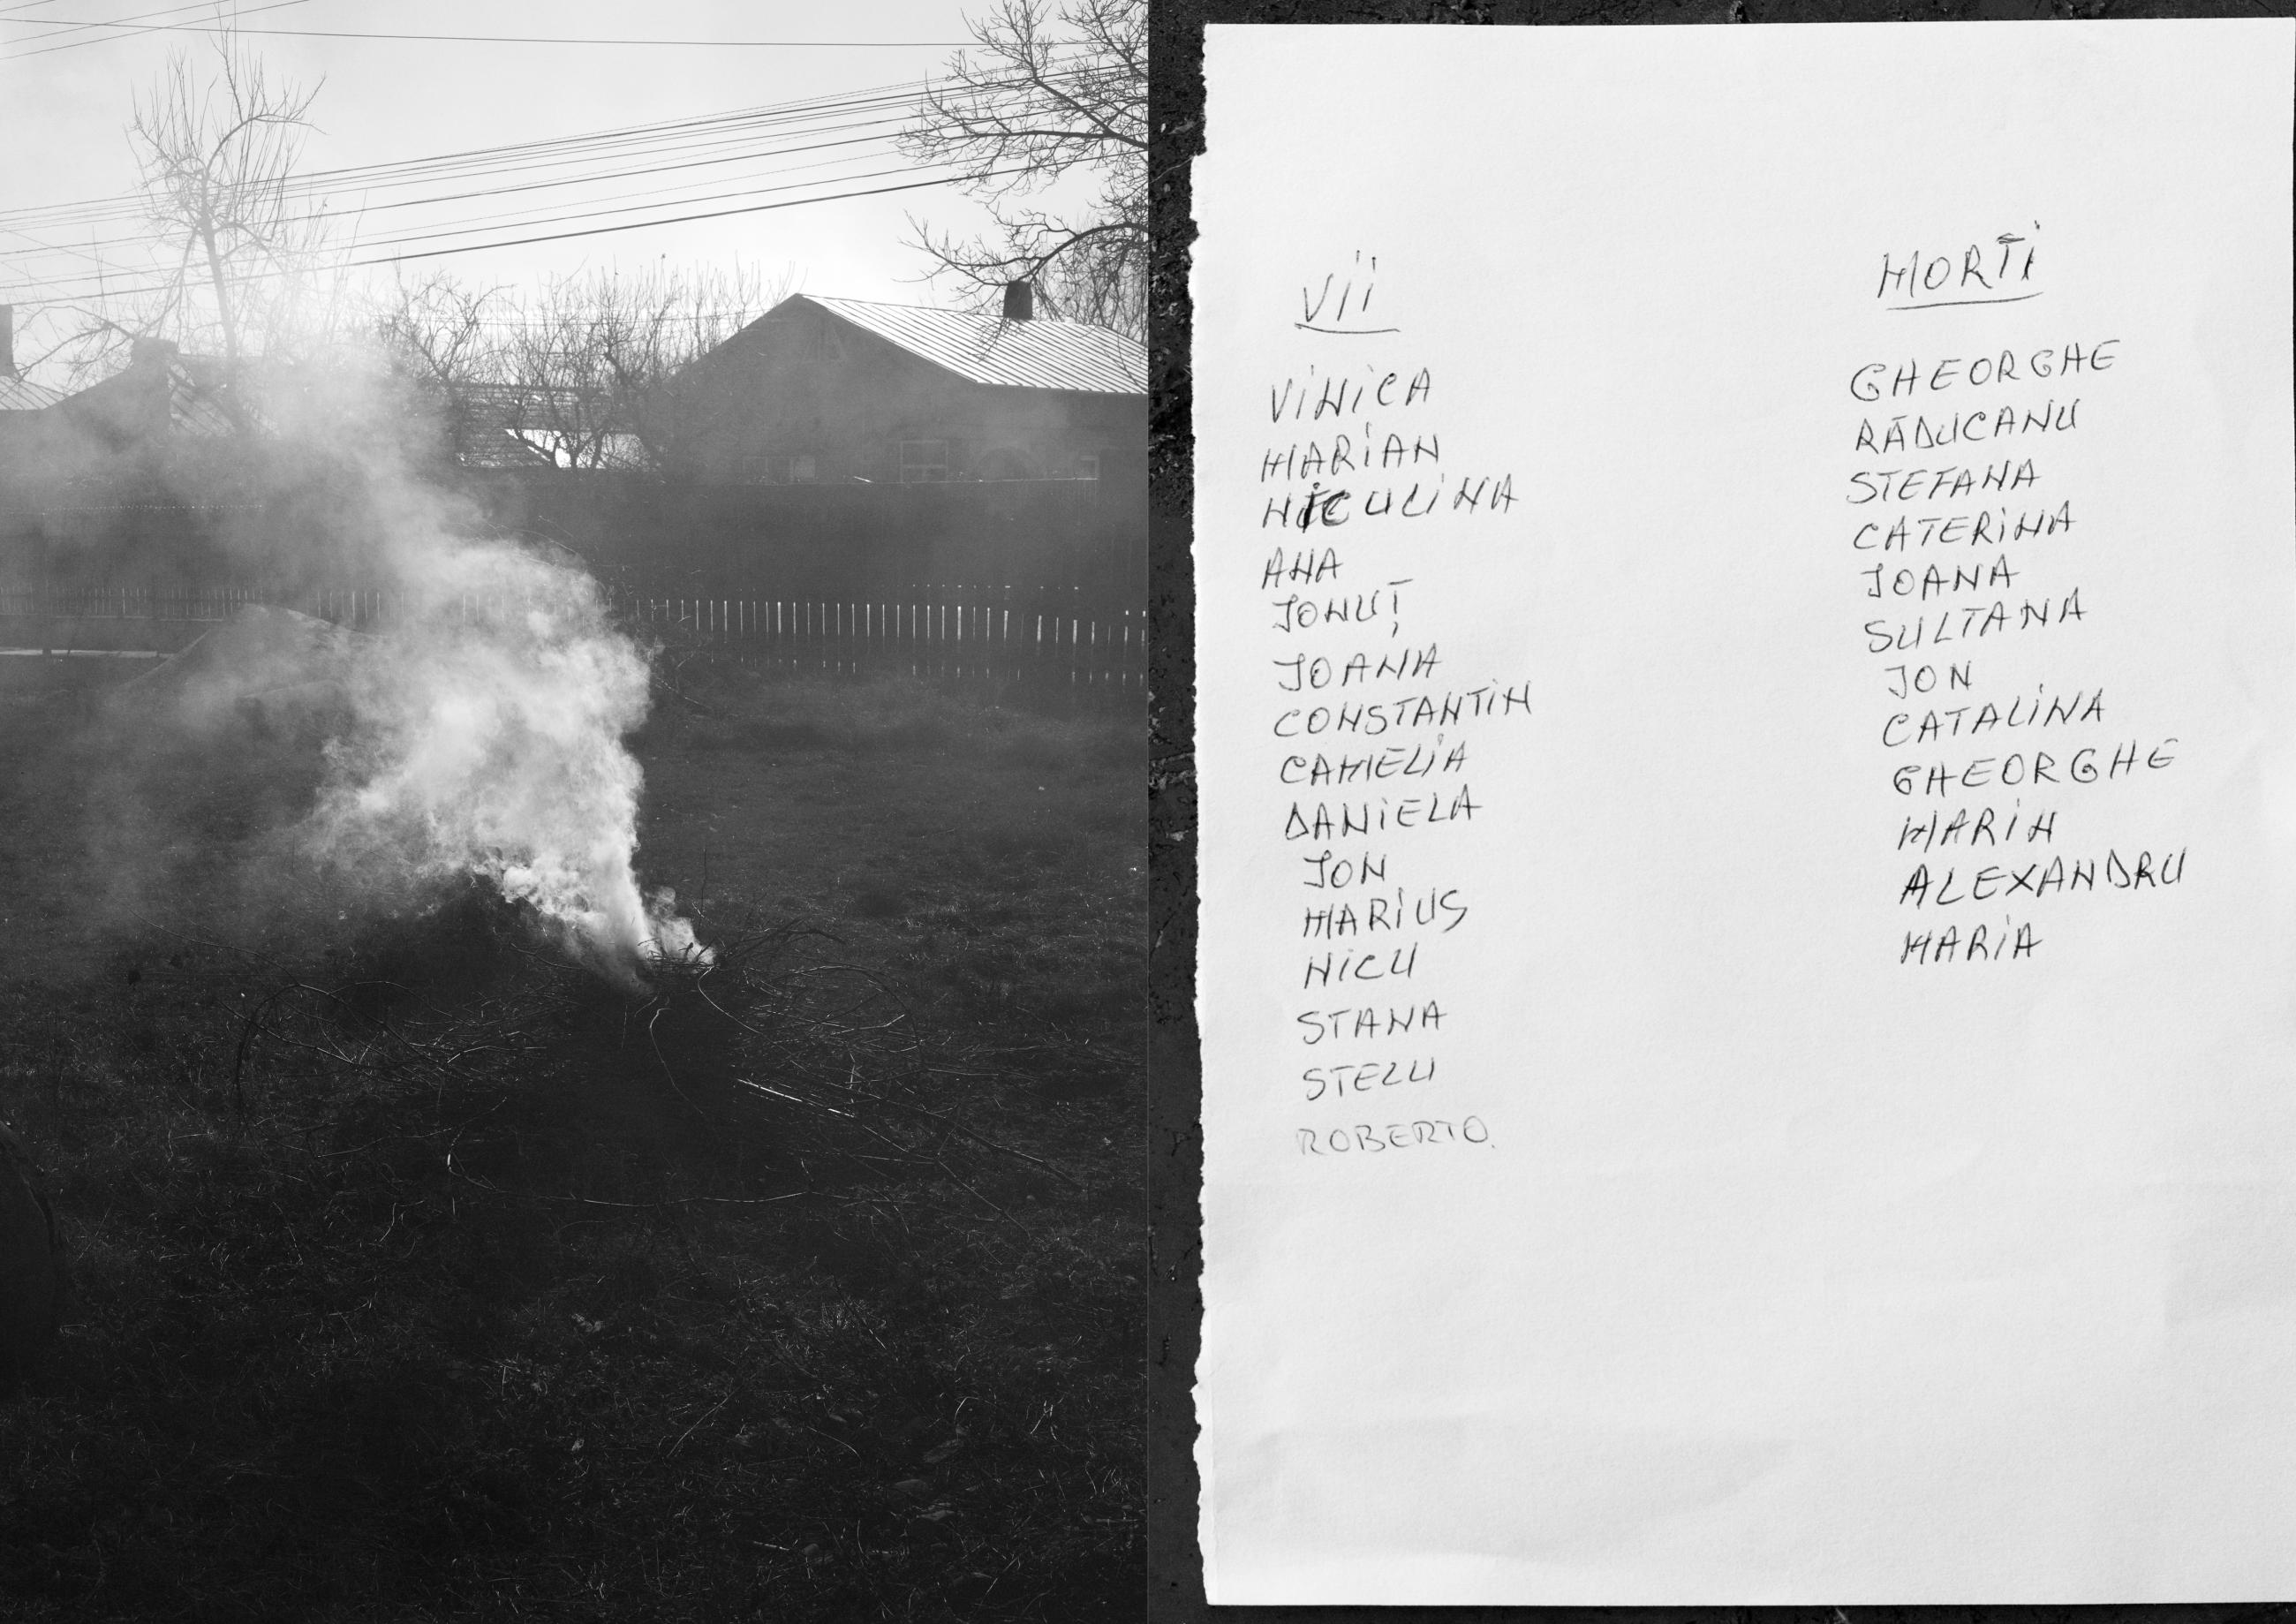 Vii
ViNiCA
MARiAN
NiCULiNA
ANA
IONUȚ
IOANA
CONSTANTiN
CAMELiA
DANiELA
ION
MARiUS
NiCU
STANA
STELU
ROBERTO.
MORTi
GHEORGHE
RĂDUCANU
STEFANA
CATERiNA
IOANA
SULTANA
ION
CATALiNA
GHEORGHE
MARiN
ALEXANDRU
MARiA